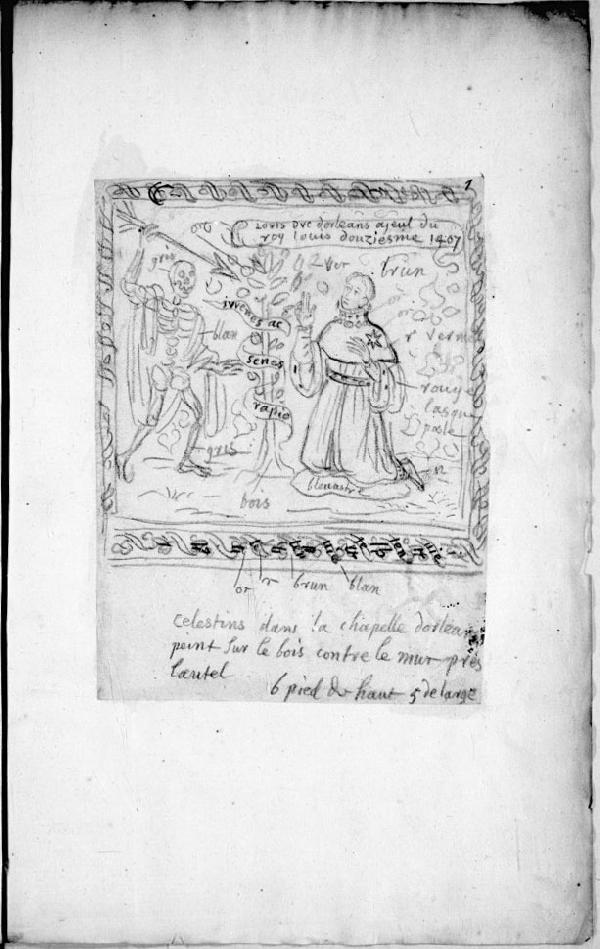 1
Louis Duc dorleans ajeul du
roy louis douziesme 1407
or
gris
ver
brun
or
juvenes ac
blan
r verm
senes
rouge
lasque
pasle
rapio
gris
bleuastre
n
bois
or r brun blan
Celestins dans la chapelle dorlean
peint sur le bois contre le mur pres
lautel
6 pied de haut 5 de large